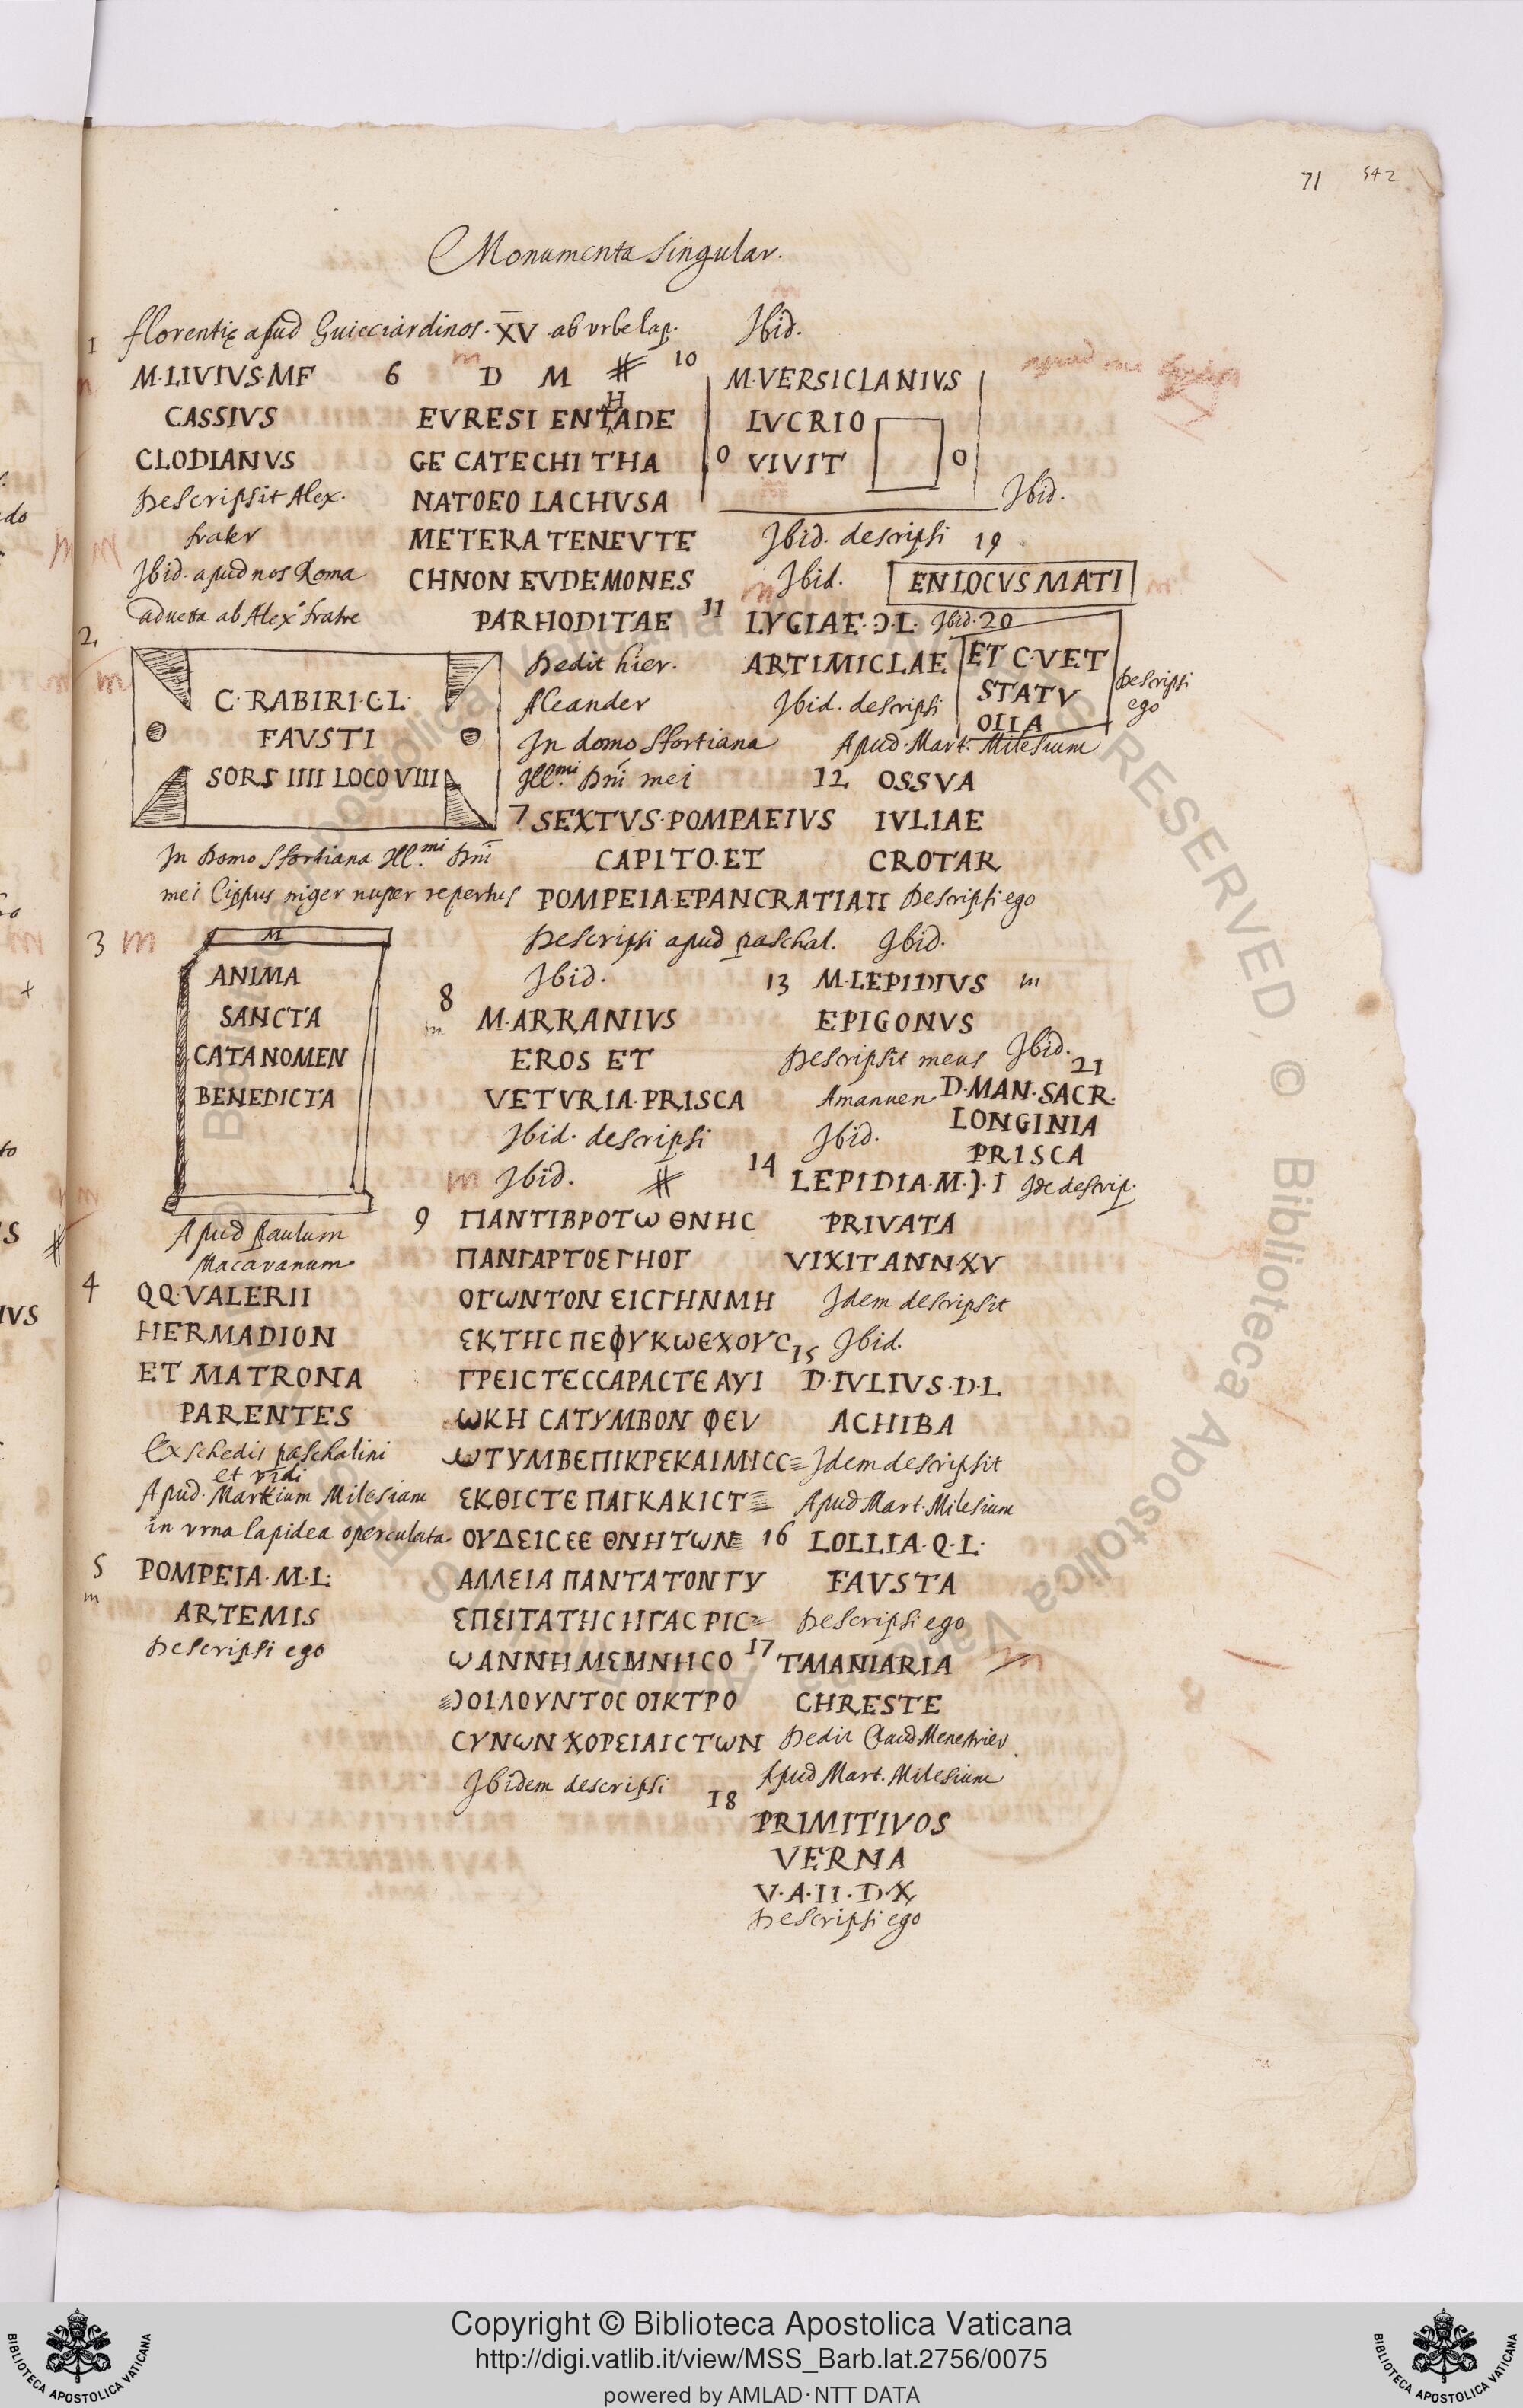 71 542
Monumenta Singular.
1 florentię apud Guicciardinos. XV ab urbe lap.
M·LIVIVS·MF
CASSIVS
CLODIANVS
Descripsit Alex.
frater
Ibid. apud nos Roma
aduecta ab Alex.º fratre
2
C·RABIRI·C·L·
FAVSTI
SORS IIII LOCO VIII
In Domo Sfortiana Ill.mi Dni
mei Cippus niger nuper repertus
3
M
ANIMA
SANCTA
CATANOMEN
BENEDICTA
Apud Paulum
Macaranum
4 QQ·VALERII
HERMADION
ET MATRONA
PARENTES
Ex schedis paschalini
et vidi
Apud. Martium Milesium
in vrna lapidea operculata
5 POMPEIA·M·L·
ARTEMIS
Descripsi ego
6 D M
H
EVRESI ENTADE
GE CATECHI THA
NATOEO LACHVSA
METERA TENEVTE
CHNON EVDEMONES
PARHODITAE
Dedit hier.
Aleander
In domo Sfortiana
Ill.mi Dni mei
7 SEXTVS·POMPAEIVS
CAPITO·ET
POMPEIA·EPANCRATIAII
Descripsi apud paschal.
Ibid.
8 M·ARRANIVS
EROS ET
VETVRIA·PRISCA
Ibid. descripsi
Ibid.
9 ΠΑΝΤΙΒΡΟΤω ΘΝΗC
ΠΑΝΓΑΡΤΟΕΓΗΟΓ
ΟΓωΝΤΟΝ ΕΙCΓΗΝΜΗ
ΕΚΤΗC ΠΕΦΥΚωΕΧΟΥC
ΓΡΕΙCΤΕCCΑΡΑCΤΕ ΑΥΙ
ωΚΗ CΑΤΥΜΒΟΝ ΦΕV
ωΤΥΜΒΕΠΙΚΡΕΚΑΙΜΙCC
ΕΚΘΙCΤΕ ΠΑΓΚΑΚΙCΤ
ΟΥΔΕΙCΕΕ ΘΝΗΤωΝ
ΑΛΛΕΙΑ ΠΑΝΤΑΤΟΝΓΥ
ΕΠΕΙΤΑΤΗCΗΓΑCΡΙC
ωΑΝΝΗΜΕΜΝΗCΟ
ϽΟΙΛΟΥΝΤΟC ΟΙΚΤΡΟ
CΥΝωΝ ΧΟΡΕΙΑΙCΤωΝ
Ibidem descripsi
Ibid.
10 M·VERSICLANIVS
LVCRIO
O VIVIT O
Ibid. descripsi
Ibid.
11 LYCIAE·Ɔ·L·
ARTIMICLAE
Ibid. descripsi
Apud·Mart. Milesium
12 OSSVA
IVLIAE
CROTAR
Descripsi ego
Ibid.
13 M·LEPIDIVS
EPIGONVS
Descripsit meus
Amanuen
Ibid.
14 LEPIDIA·M·Ɔ·I
PRIVATA
VIXIT ANN·XV
Idem descripsit
15 Ibid.
D·IVLIVS·D·L
ACHIBA
Idem descripsit
Apud Mart. Milesium
16 LOLLIA·Q·L·
FAVSTA
Descripsi ego
17 TMANIARIA
CHRESTE
Dedit Claud Menestrier
Apud Mart. Milesium
18 PRIMITIVOS
VERNA
V·A·II·D·X
Descripsi ego
Ibid.
19
ENLOCVS MATI
Ibid. 20
ET C·VET
STATV
OIIA
Descripsi
ego
Ibid.
21 D·MAN·SACR·
LONGINIA
PRISCA
Ide descrip.
Copyright © Biblioteca Apostolica Vaticana
http://digi.vatlib.it/view/MSS_Barb.lat.2756/0075
powered by AMLAD·NTT DATA
BIBLIOTECA APOSTOLICA VATICANA
BIBLIOTECA APOSTOLICA VATICANA